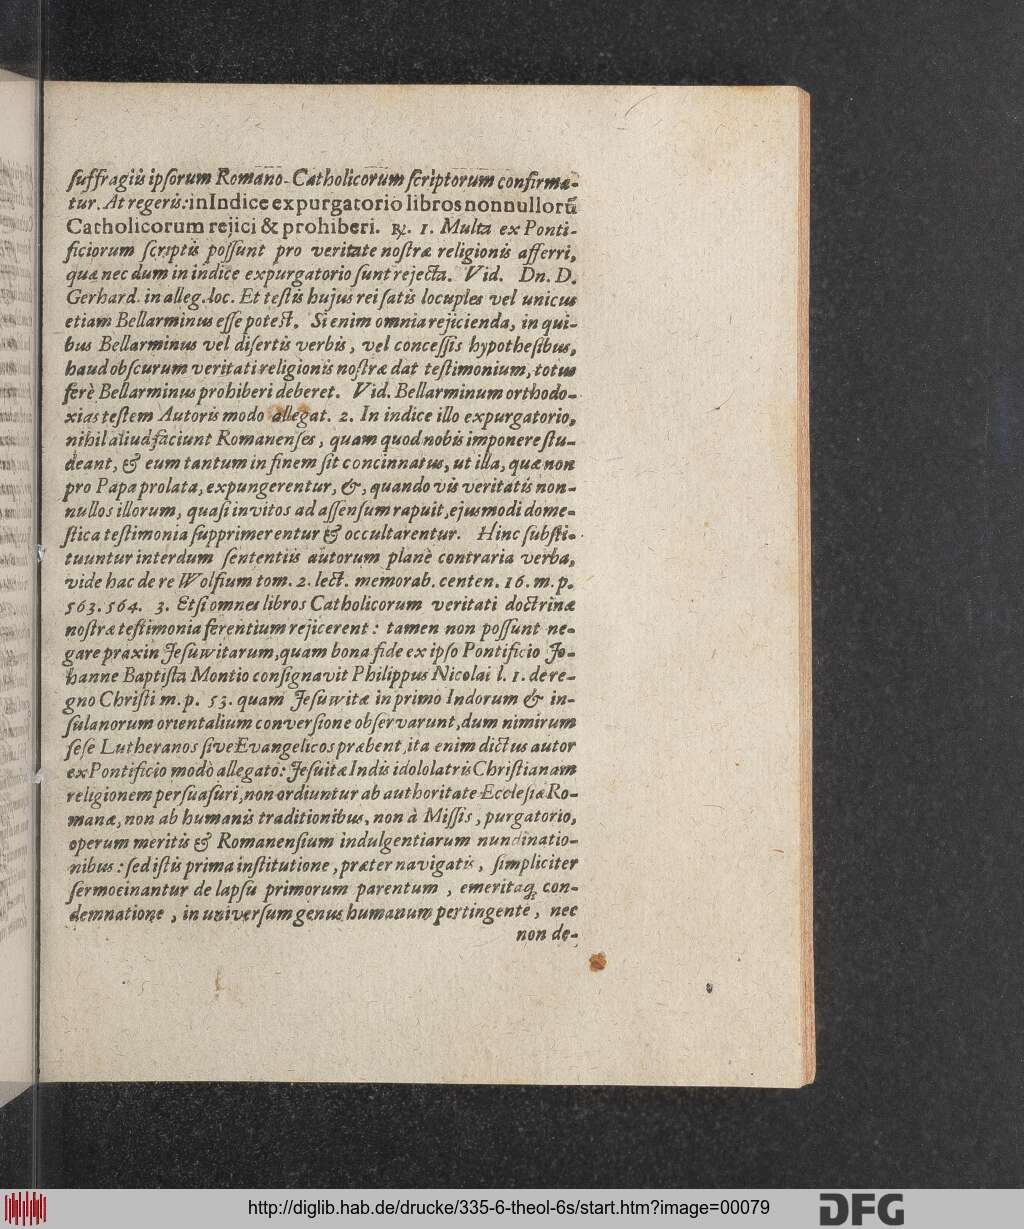 ſuffragiis ipſorum Romano-Catholicorum ſcriptorum confirma-
tur. At regeris: in Indice expurgatorio libros nonnullorũ
Catholicorum rejici & prohiberi. ℞. 1. Multa ex Ponti-
ficiorum ſcriptis poſſunt pro veritate noſtræ religionis afferri,
quæ nec dum in indice expurgatorio ſunt rejecta. Vid. Dn. D.
Gerhard. in alleg. loc. Et teſtis hujus rei ſatis locuples vel unicus
etiam Bellarminus eſſe poteſt. Si enim omnia rejicienda, in qui-
bus Bellarminus vel diſertis verbis, vel conceſſis hypotheſibus,
haud obſcurum veritati religionis noſtræ dat teſtimonium, totus
ferè Bellarminus prohiberi deberet. Vid. Bellarminum orthodo-
xias teſtem Autoris modo allegat. 2. In indice illo expurgatorio,
nihil aliud faciunt Romanenſes, quam quod nobis imponere ſtu-
deant, & eum tantum in finem ſit concinnatus, ut illa, quæ non
pro Papa prolata, expungerentur, &, quando vis veritatis non-
nullos illorum, quaſi invitos ad aſſenſum rapuit, ejusmodi dome-
ſtica teſtimonia ſupprimerentur & occultarentur. Hinc ſubſti-
tuuntur interdum ſententiis autorum planè contraria verba,
vide hac de re Wolfium tom. 2. lect. memorab. centen. 16. m. p.
563. 564. 3. Etſi omnes libros Catholicorum veritati doctrinæ
noſtræ teſtimonia ferentium rejicerent: tamen non poſſunt ne-
gare praxin Jeſuwitarum, quam bona fide ex ipſo Pontificio Jo-
hanne Baptiſta Montio conſignavit Philippus Nicolai l. 1. de re-
gno Chriſti m. p. 53. quam Jeſuwitæ in primo Indorum & in-
ſulanorum orientalium converſione obſervarunt, dum nimirum
ſeſe Lutheranos ſive Evangelicos præbent, ita enim dictus autor
ex Pontificio modò allegato: Jeſuitæ Indis idololatris Chriſtianam
religionem perſuaſuri, non ordiuntur ab authoritate Eccleſiæ Ro-
manæ, non ab humanis traditionibus, non à Miſſis, purgatorio,
operum meritis & Romanenſium indulgentiarum nundinatio-
nibus: ſed iſtis prima inſtitutione, præter navigatis, ſimpliciter
ſermocinantur de lapſu primorum parentum, emeritaq; con-
demnatione, in univerſum genus humanum pertingente, nec
non de-
http://diglib.hab.de/drucke/335-6-theol-6s/start.htm?image=00079
DFG